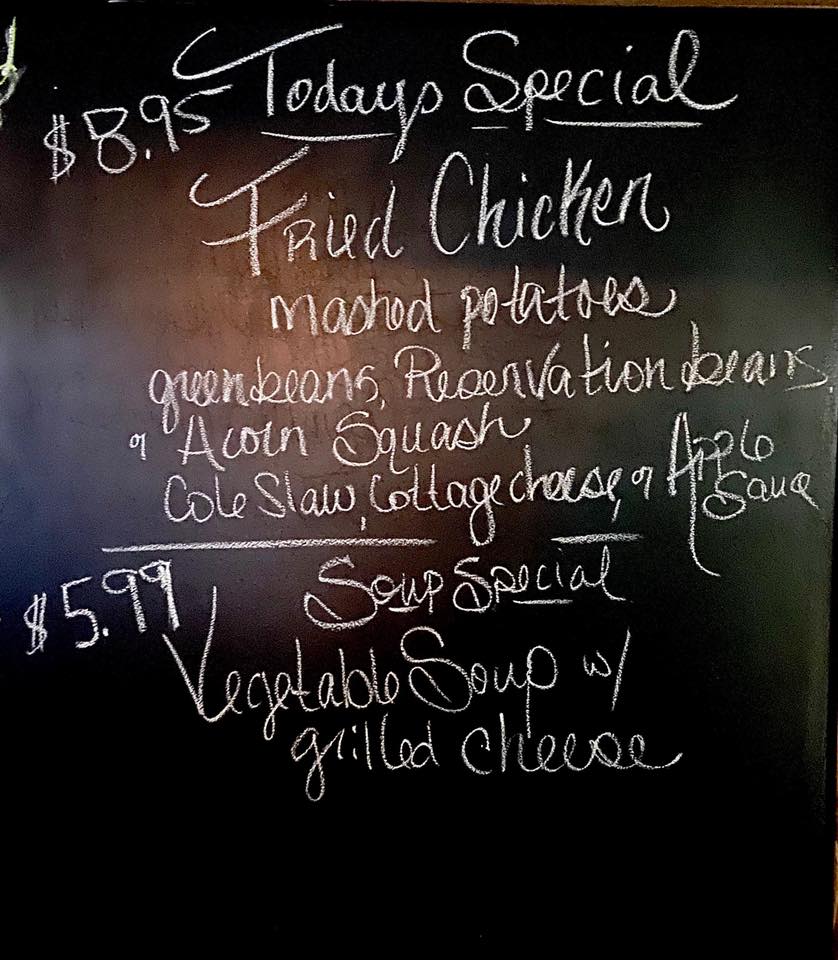 Todays Special
$8.95
Fried Chicken
mashed potatoes
green beans, Reservation beans,
or Acorn Squash
Cole Slaw, Cottage cheese, or Apple Sauce
$5.99 Soup Special
Vegetable Soup w/
grilled cheese